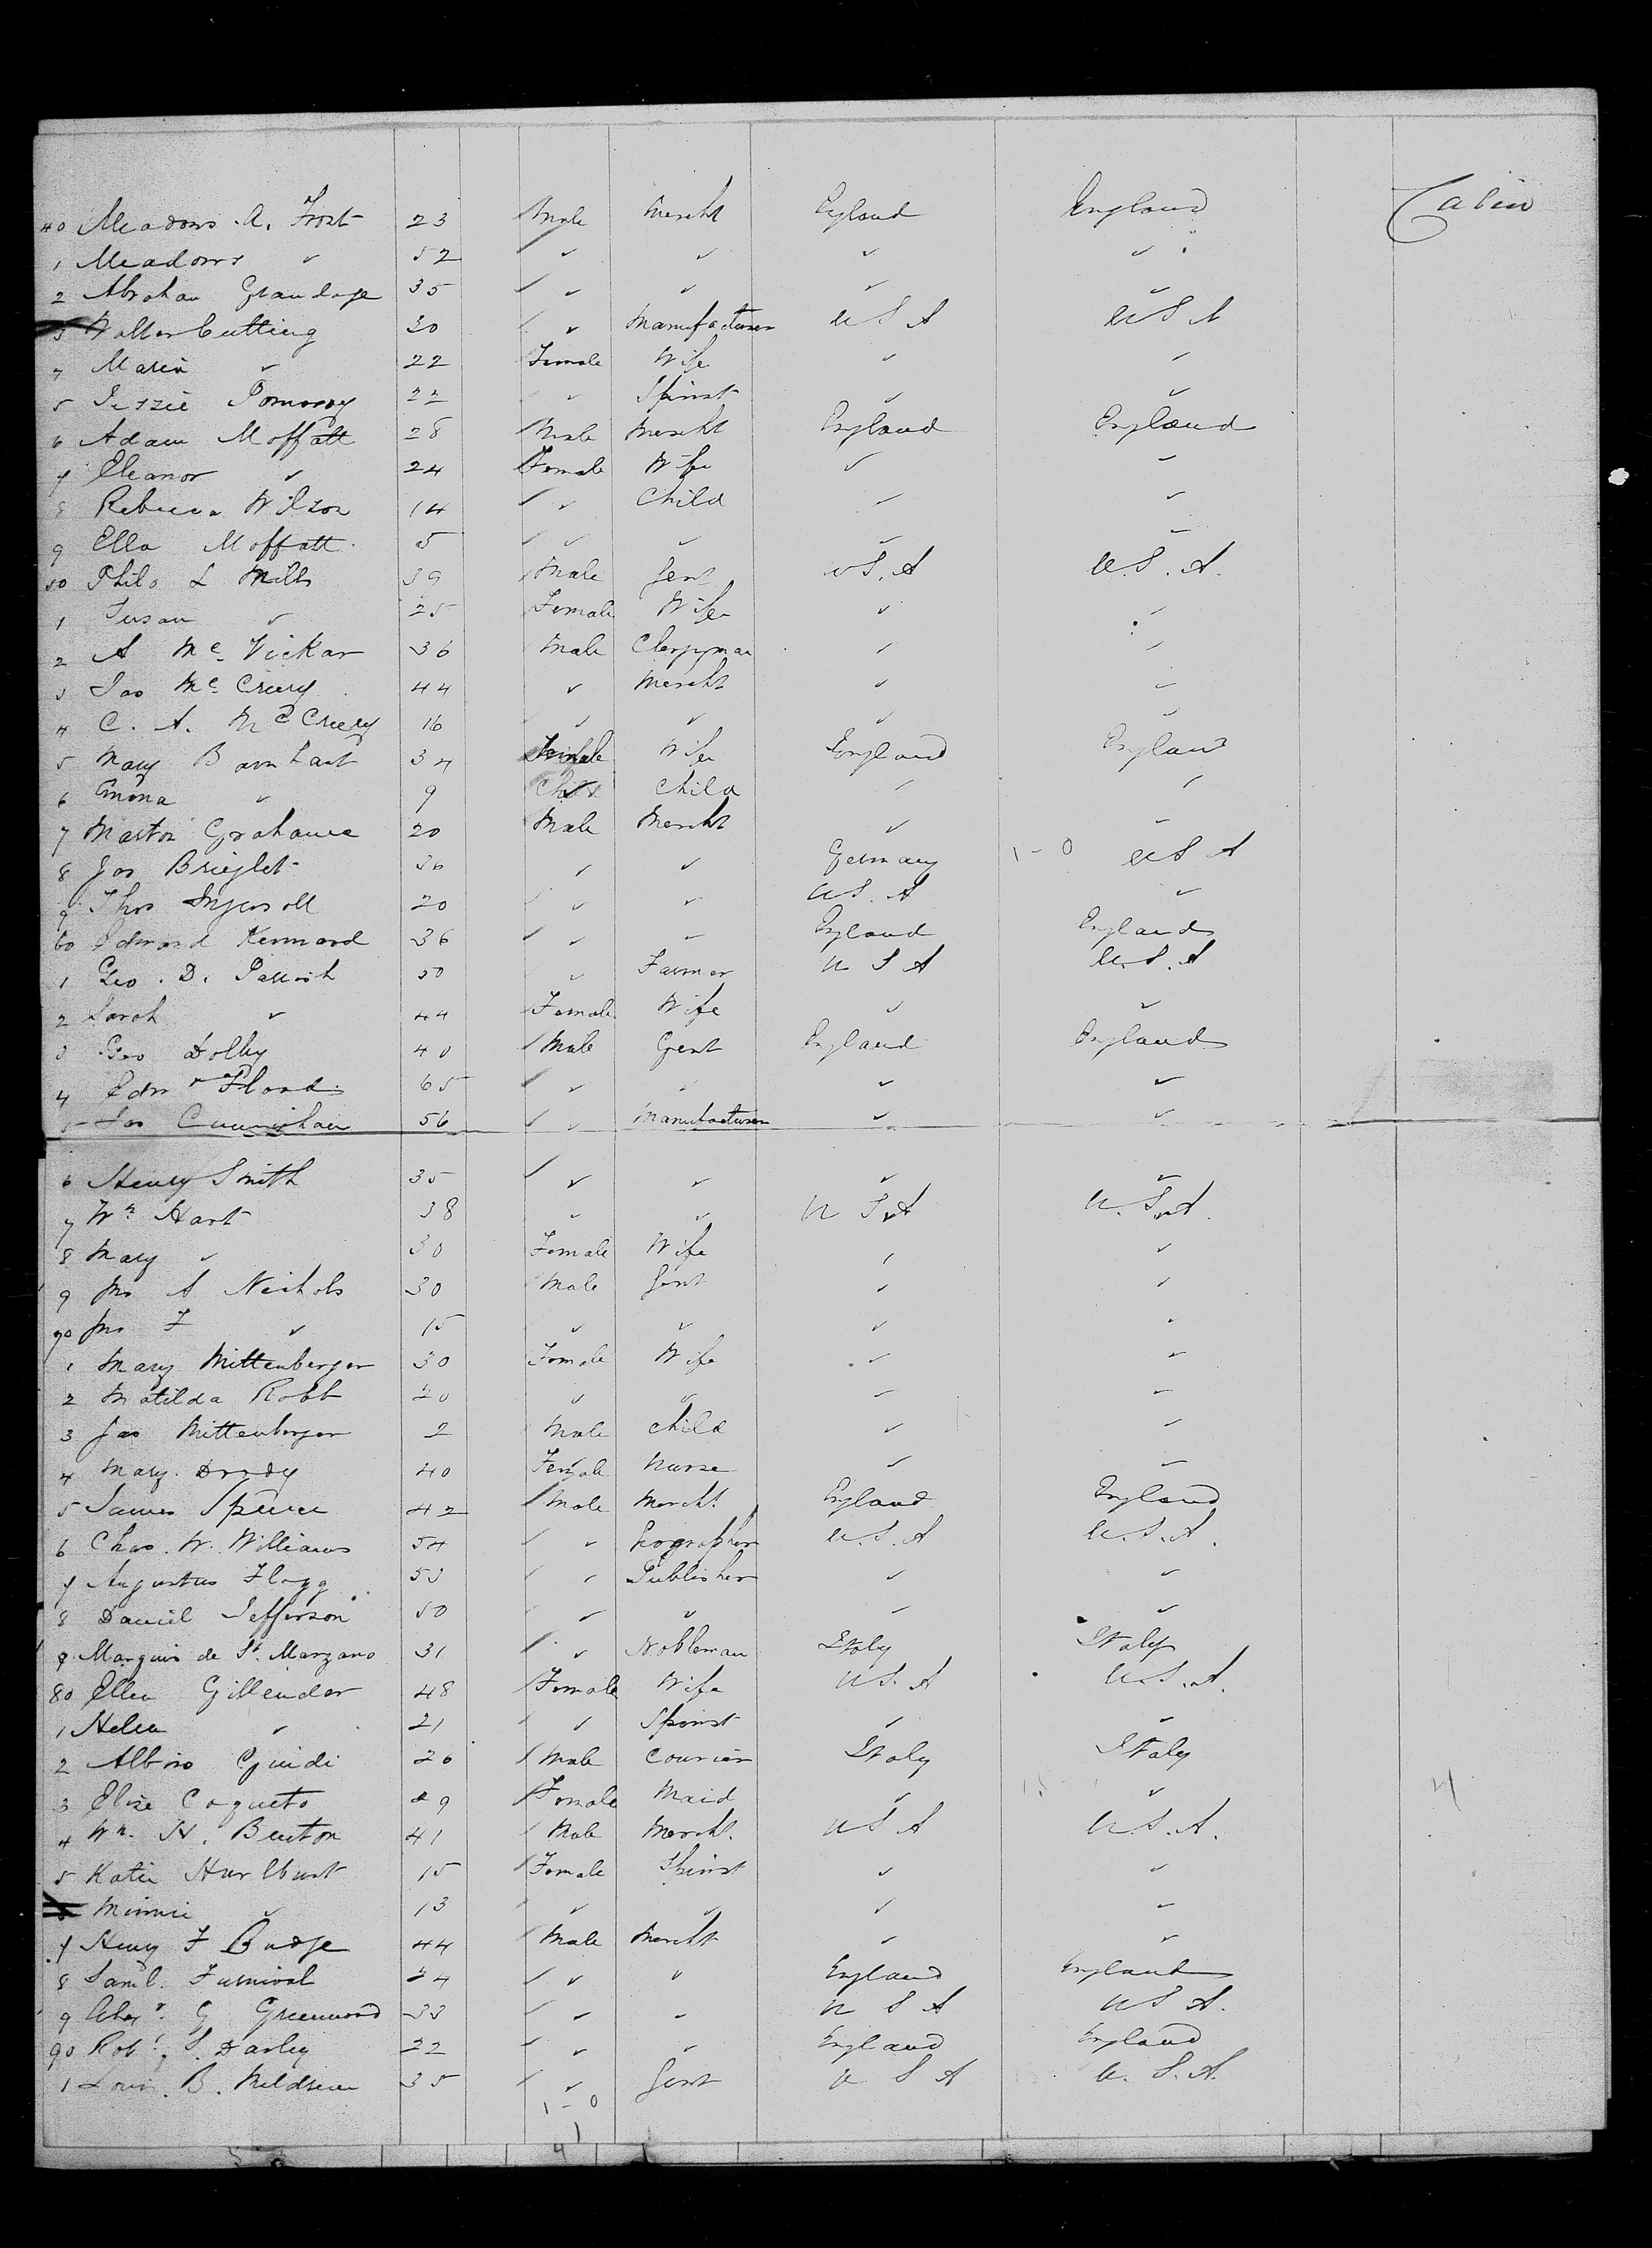 40 Meadows A. Frost 23 Male Mercht England England Cabin
1 Meadows " 52 " " " "
2 Abraham Grandage 35 " " " "
3 Walter Cutting 30 " Manufacturer U S A U S A
4 Maria " 22 Female Wife " "
5 Jessie Pomeroy 22 " Spinst " "
6 Adam Moffatt 28 Male Mercht England England
7 Eleanor " 24 Female Wife " "
8 Rebecca Wilson 14 " Child " "
9 Ella Moffatt 5 " " " "
50 Philo L Mills 39 Male Gent U S. A U. S. A.
1 Susan " 25 Female Wife " "
2 A Mc Vickar 36 Male Clergyman " "
3 Jas Mc Creery 44 " Mercht " "
4 C. A. Mc Creery 16 " " " "
5 Mary Barnhart 34 Female Wife England England
6 Emma " 9 Child Child " "
7 Marton Grahame 20 Male Mercht " "
8 Jos 36 " " Germany 1-0 U S A
9 Thos Ingersoll 20 " " U S. A "
60 Edward Kennard 36 " " England England
1 Geo. D. Parrish 50 " Farmer U S A U. S. A
2 Sarah " 44 Female Wife " "
3 Geo Dolby 40 Male Gent England England
4 Edwd Flood 65 " " " "
5 Jas 56 " Manufacturer " "
6 Henry Smith 35 " " " "
7 Wm Hart 38 " " U S A U. S. A.
8 Mary " 30 Female Wife " "
9 Jno A Nichols 30 Male Gent " "
70 Jno F " 15 " " " "
1 Mary Mittenberger 30 Female Wife " "
2 Matilda Robb 20 " " " "
3 Jas Mittenberger 2 Male Child " "
4 Mary 40 Female Nurse " "
5 James Spence 42 Male Mercht England England
6 Chas. W. Williams 54 " Geographer U. S. A U. S. A.
7 Augustus Flagg 53 " Publisher " "
8 Daniel Jefferson 50 " " " "
9 Marquis de St. Marzano 31 " Nobleman Italy Italy
80 Ellen Gillender 48 Female Wife U S. A U. S. A.
1 Helen " 21 " Spinst " "
2 Albino Guidi 26 Male Courier Italy Italy
3 Elise Coqueto 29 Female Maid " "
4 Wm. H. Benton 41 Male Mercht. U S A U. S. A.
5 Katie Hurlburt 15 Female Spinst " "
6 Minnie " 13 " " " "
7 Henry F Budge 44 Male Mercht " "
8 Saml. Furnival 24 " " England England
9 Alexr. G Greenwood 33 " " U S A U S A.
90 Robt. S. Darley 22 " " England England
1 Louis. B. 35 " Gent U S A U. S. A.
1-0